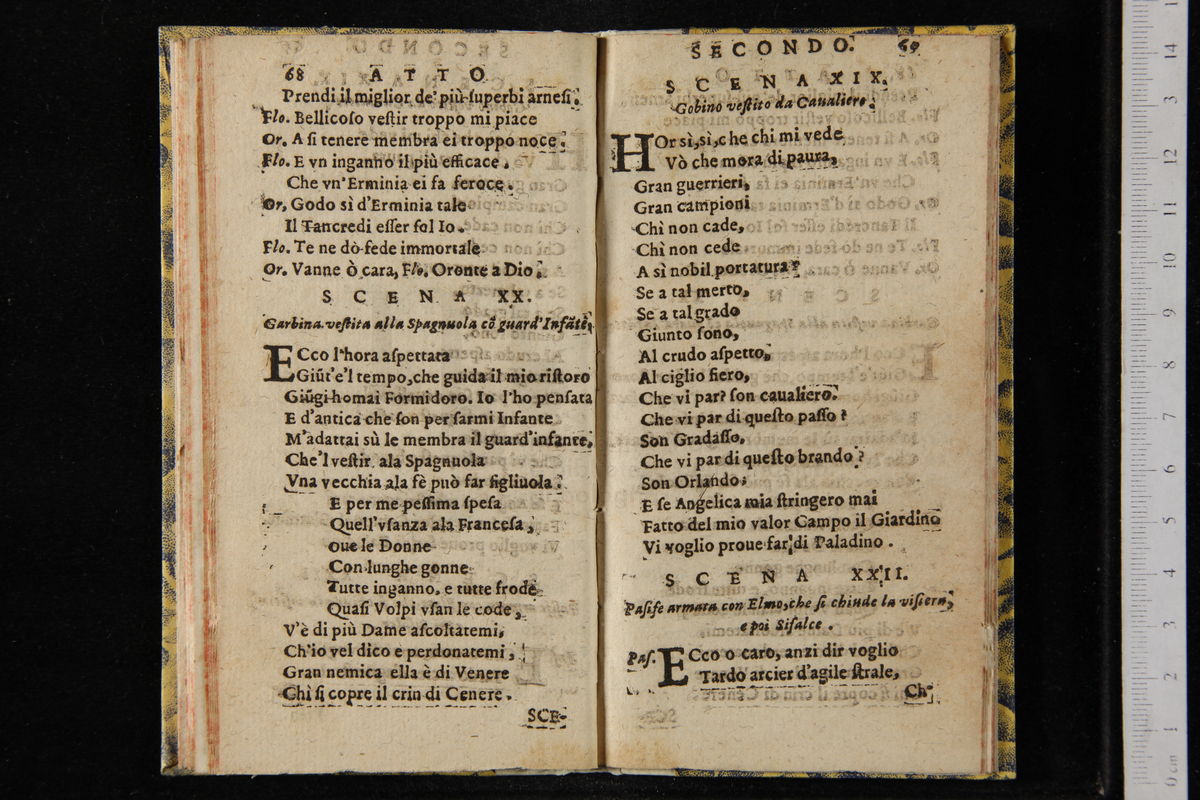 68 ATTO
Prendi il miglior de' più ſuperbi arneſi.
Flo. Bellicoſo veſtir troppo mi piace
Or. A ſi tenere membra ei troppo noce.
Flo. E vn inganno il più efficace.
Che vn'Erminia ei fa feroce.
Or, Godo sì d'Erminia tale
Il Tancredi eſſer ſol Io.
Flo. Te ne dò fede immortale
Or. Vanne ò cara, Flo. Oronte a Dio.
SCENA XX.
Garbina veſtita alla Spagnuola cõ guard'Infãte.
ECco l'hora aſpettata
Giũt'e'l tempo, che guida il mio riſtoro
Giũgi homai Formidoro. Io l'ho penſata
E d'antica che ſon per farmi Infante
M'adattai sù le membra il guard'infante,
Che'l veſtir ala Spagnuola
Vna vecchia ala fè può far figliuola.
E per me peſſima ſpeſa
Quell'vſanza ala Franceſa,
oue le Donne
Con lunghe gonne
Tutte inganno, e tutte frode
Quaſi Volpi vſan le code,
V'è di più Dame aſcoltatemi,
Ch'io vel dico e perdonatemi,
Gran nemica ella è di Venere
Chi ſi copre il crin di Cenere.
SCE-
SECONDO. 69
SCENA XIX.
Gobino veſtito da Caualiero.
HOr sì, sì, che chi mi vede
Vò che mora di paura,
Gran guerrieri,
Gran campioni
Chì non cade,
Chì non cede
A sì nobil portatura?
Se a tal merto,
Se a tal grado
Giunto ſono,
Al crudo aſpetto,
Al ciglio fiero,
Che vi par? ſon caualiero.
Che vi par di queſto paſſo?
Son Gradaſſo,
Che vi par di queſto brando?
Son Orlando;
E ſe Angelica mia ſtringero mai
Fatto del mio valor Campo il Giardino
Vi voglio proue far di Paladino.
SCENA XXII.
Paſife armata con Elmo, che ſi chiude la viſiera,
e poi Sifalce.
Paſ. ECco o caro, anzi dir voglio
Tardo arcier d'agile ſtrale,
Ch-